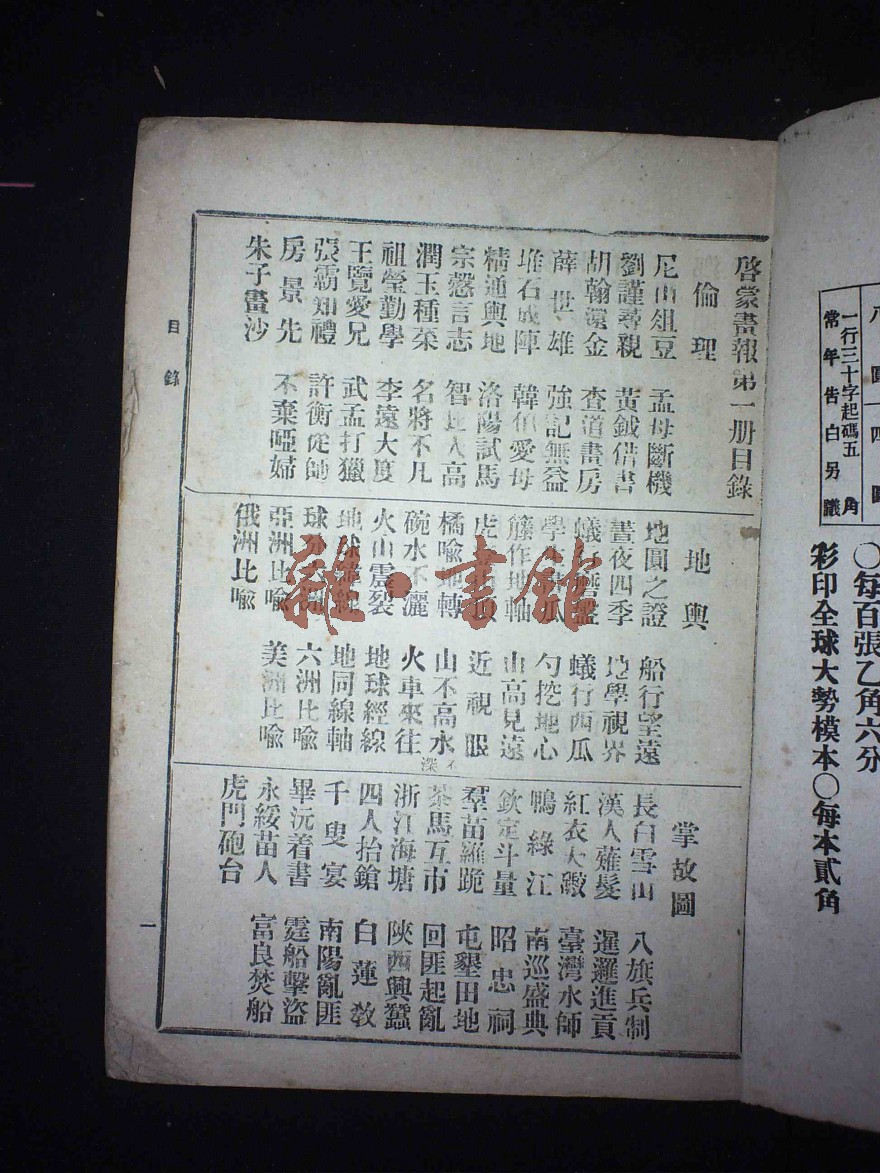 啓蒙畫報第一册目錄
倫理
尼山俎豆 孟母斷機
劉謹尋親 黃鉞借書
胡翰還金 查道畫房
薛世雄 強記無益
堆石成陣 韓伯愛母
精通輿地 洛陽試馬
宗慤言志 智過人高
潤玉種菜 名將不凡
祖瑩勤學 李遠大度
王覽愛兄 武孟打獵
張霸知禮 許衡從師
房景先 不棄啞婦
朱子畫沙
地輿
地圓之證 船行望遠
晝夜四季 地學視界
蟻行磨盤 蟻行西瓜
學生 瓜 勺挖地心
籐作地軸 山高見遠
虎 近視眼
橘喻地轉 山不高水不深
碗水不灑 火車來往
火山震裂 地球經線
地球緯線 地同線軸
球分六洲 六洲比喻
亞洲比喻 美洲比喻
俄洲比喻
掌故圖
長白雪山 八旗兵制
漢人薙髮 暹邏進貢
紅衣大礮 臺灣水師
鴨綠江 南巡盛典
欽定斗量 昭忠祠
羣苗羅跪 屯墾田地
茶馬互市 回匪起亂
浙江海塘 陝西興蠶
四人抬鎗 白蓮教
千叟宴 南陽亂匪
畢沅着書 霆船擊盜
永綏苗人 富良焚船
虎門砲台
目錄
一
一行三十字起碼五角
常年告白另議
○每百張乙角六分
彩印全球大勢模本○每本貳角
雜·書館